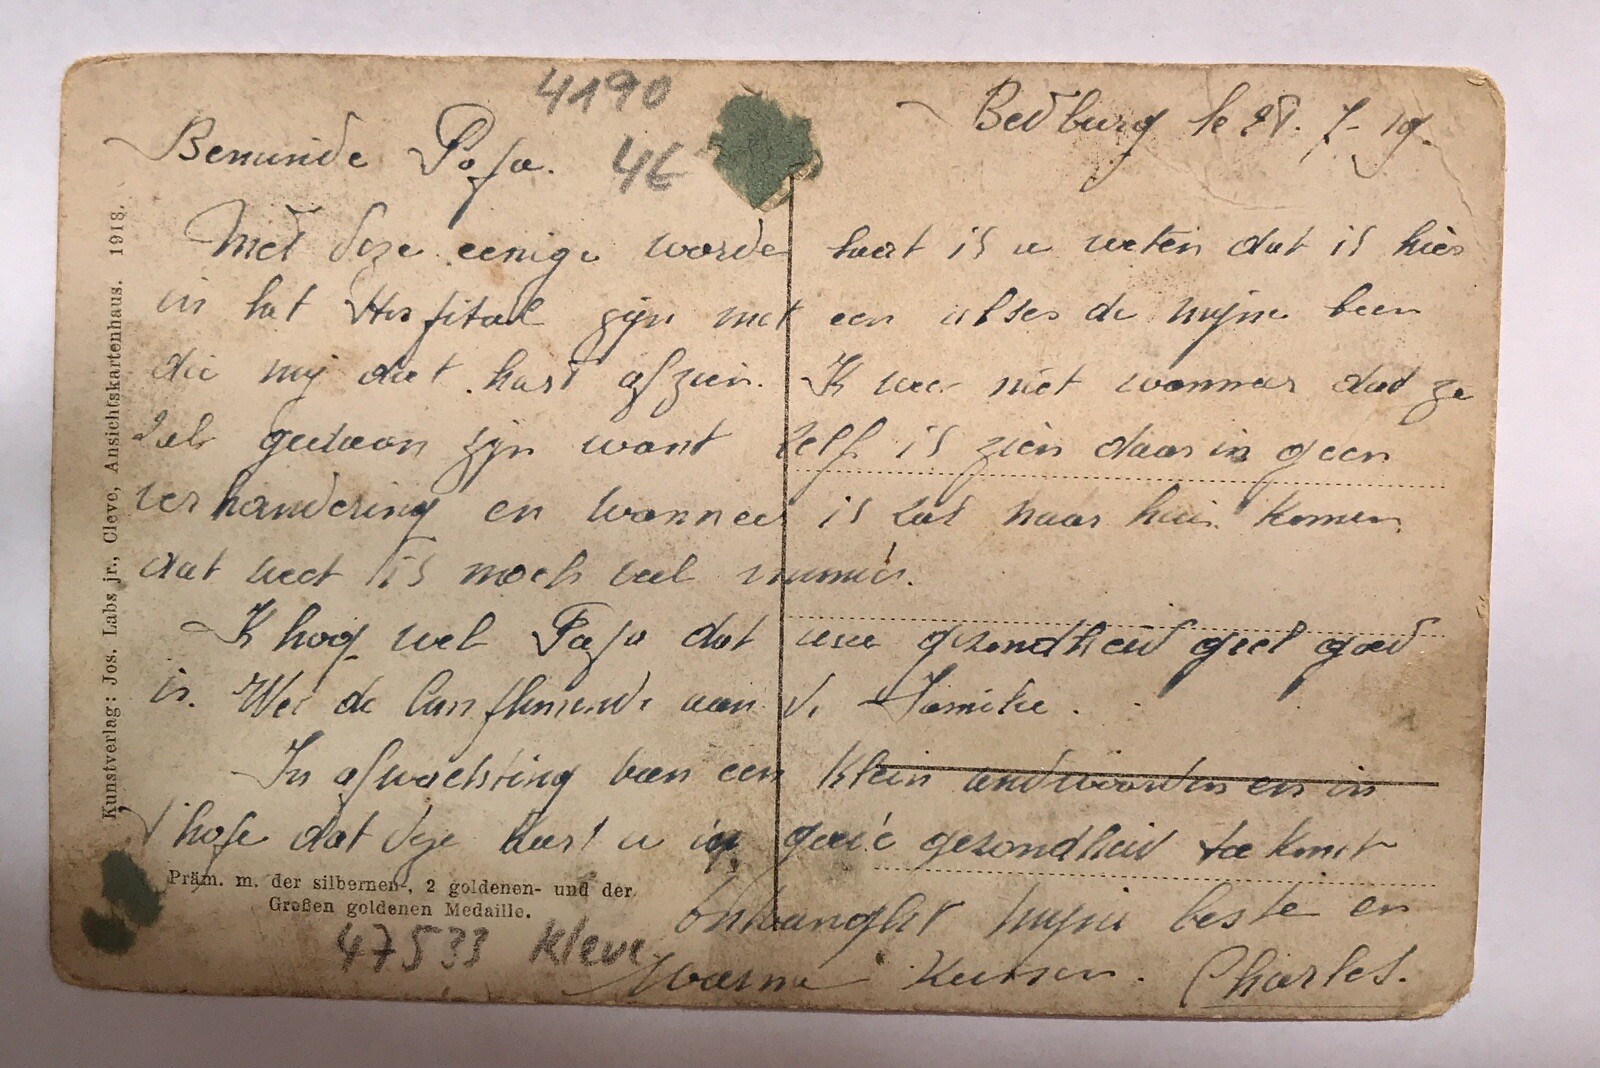 4190
4€
Bedburg le 28. 7-19.
Beminde Papa.
Met deze eenige worde laat is u weten dat is hier
in hat Hospitaal zijn met een abses de mijne been
die mij doet hart afzien. K weer niet wanneer dat ze
zal gedaan zijn want zelf is zien daar in geen
verhandering en wanneer is zal naar huis komen
dat weet is noch veel minder.
K hoop wel Papa dat uw gezondheid geel goed
is. Wel de Complimende aan de Familie.
In afwachting van een klein andwoorden en in
d'hope dat deze kaart u in goeie gezondheid toekomt
Ontvanght mijne beste en
Warme Kussen. Charles.
Kunstverlag: Jos. Labs jr., Cleve, Ansichtskartenhaus. 1918.
Präm. m. der silbernen-, 2 goldenen- und der
Großen goldenen Medaille.
47533 Kleve